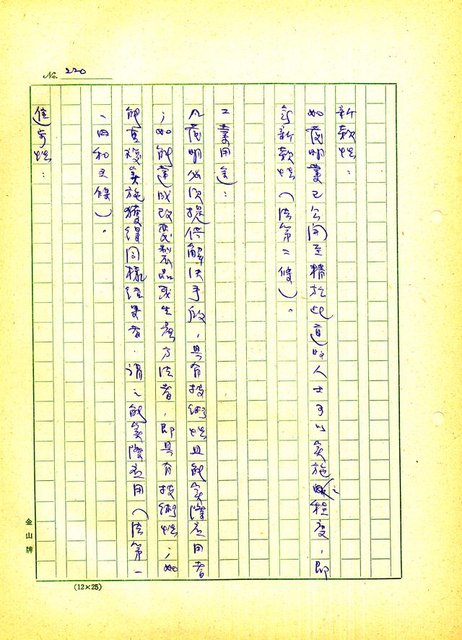 No. 220
新穎性：
如發明業已公開至精於此道的人士可以實施之程度，即
無新穎性（法第二條）。
工業用途：
凡發明必須提供解決手段，具有技術性且能實際應用者
；如能達成改變製品或生產方法者，即具有技術性；如
能重複實施獲得同樣結果者，謂之能實際應用（法第一
、四和五條）。
進步性：
金山牌
(12×25)